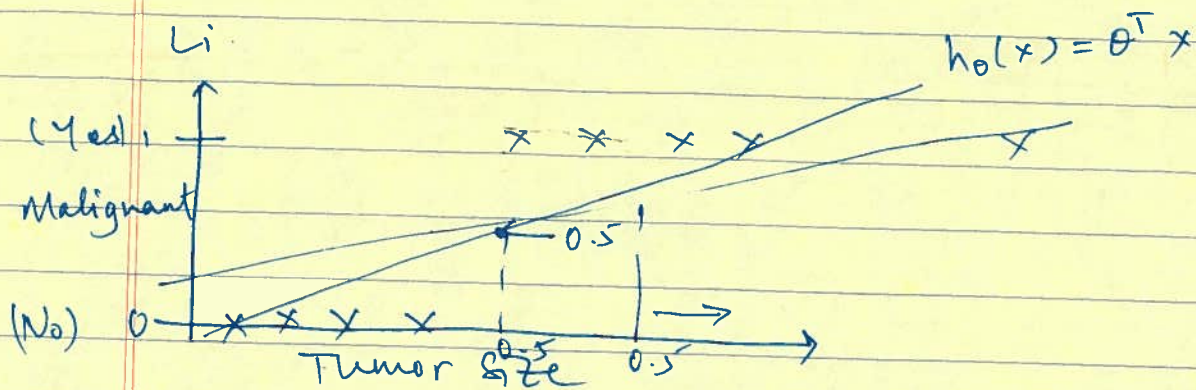 Li
h₀(x) = θᵀ x
(Yes) 1
Malignant
0.5
(No) 0
0.5
0.5
Tumor Size